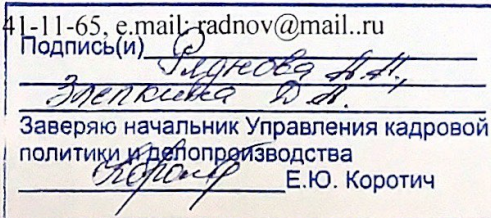 41-11-65, e.mail: radnov@mail..ru
Подпись(и) Раднова А.А.,
Злепкина Д.А.
Заверяю начальник Управления кадровой
политики и делопроизводства
Е.Ю. Коротич